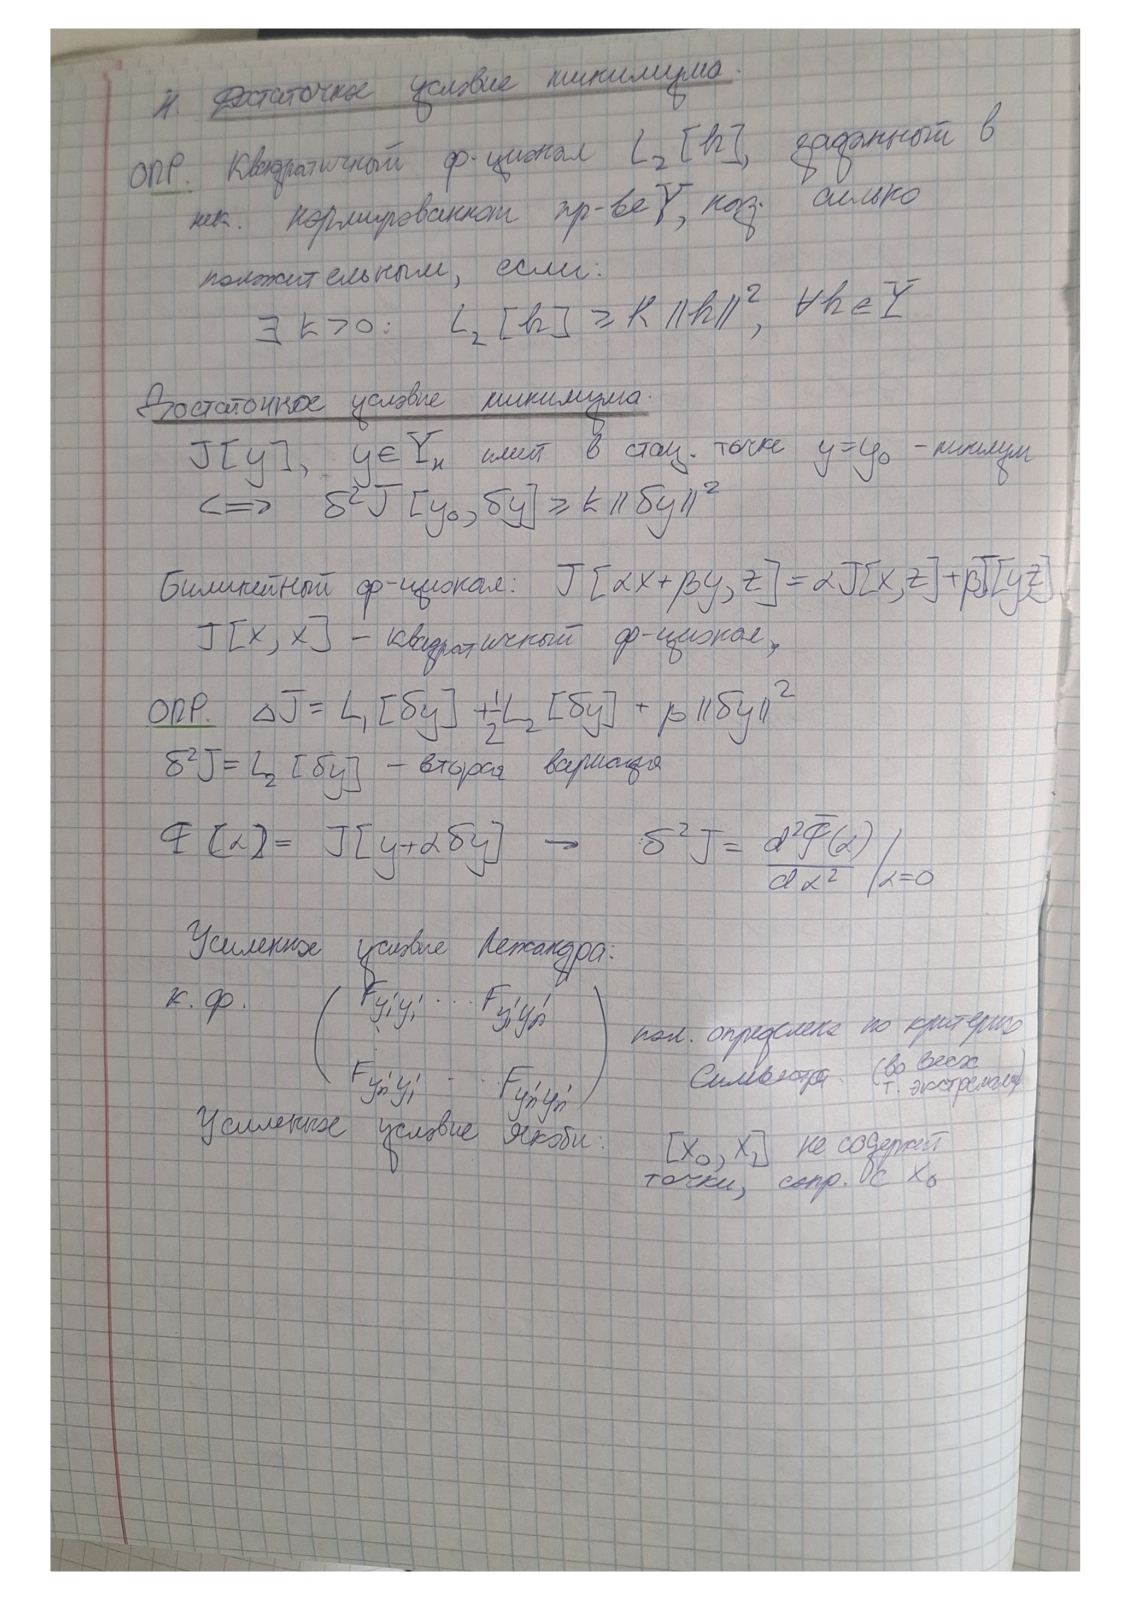 4. Достаточное условие минимума.
ОПР. Квадратичный ф-ционал L₂[h], заданный в
нек. нормированном пр-ве Y, наз. сильно
положительным, если:
∃ k>0: L₂[h] ≥ k||h||², ∀h∈Y
Достаточное условие минимума.
J[y], y∈Yₙ имеет в стац. точке y=y₀ - минимум
<=> δ²J[y₀, δy] ≥ k||δy||²
Билинейный ф-ционал: J[αx+βy, z] = αJ[x,z]+βJ[yz]
J[x, x] – квадратичный ф-ционал,
ОПР. ΔJ = L₁[δy] + ½L₂[δy] + β||δy||²
δ²J = L₂[δy] – вторая вариация
Φ(α) = J[y+αδy] → δ²J = d²Φ(α)/dα² |α=0
Усиленное условие Лежандра:
к.ф. ( Fy₁'y₁' ... Fy₁'yₙ'
Fyₙ'y₁' ... Fyₙ'yₙ' ) пол. определена по критерию
Сильвестра (во всех
т. экстремали)
Усиленное условие Якоби: [x₀, x₁] не содержит
точки, сопр. с x₀